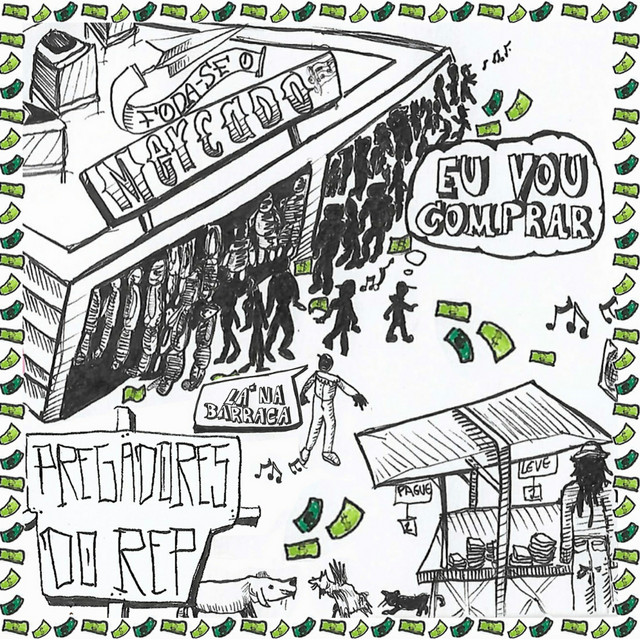 FODA-SE O
MERCADO
EU VOU
COMPRAR
LÁ NA
BARRACA
PREGADORES
DO REP
PAGUE
1
LEVE
2